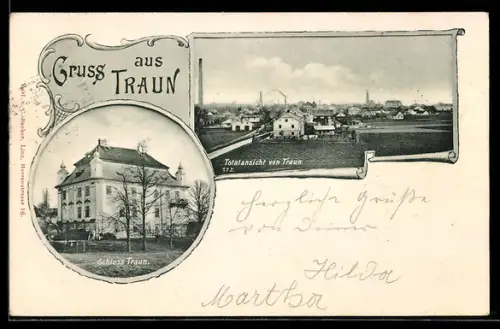 Gruss aus
TRAUN
Totalansicht von Traun
Schloss Traun.
Linz, Herrenstrasse 16.
herzliche Grüße
von Deiner
Hilda
Martha